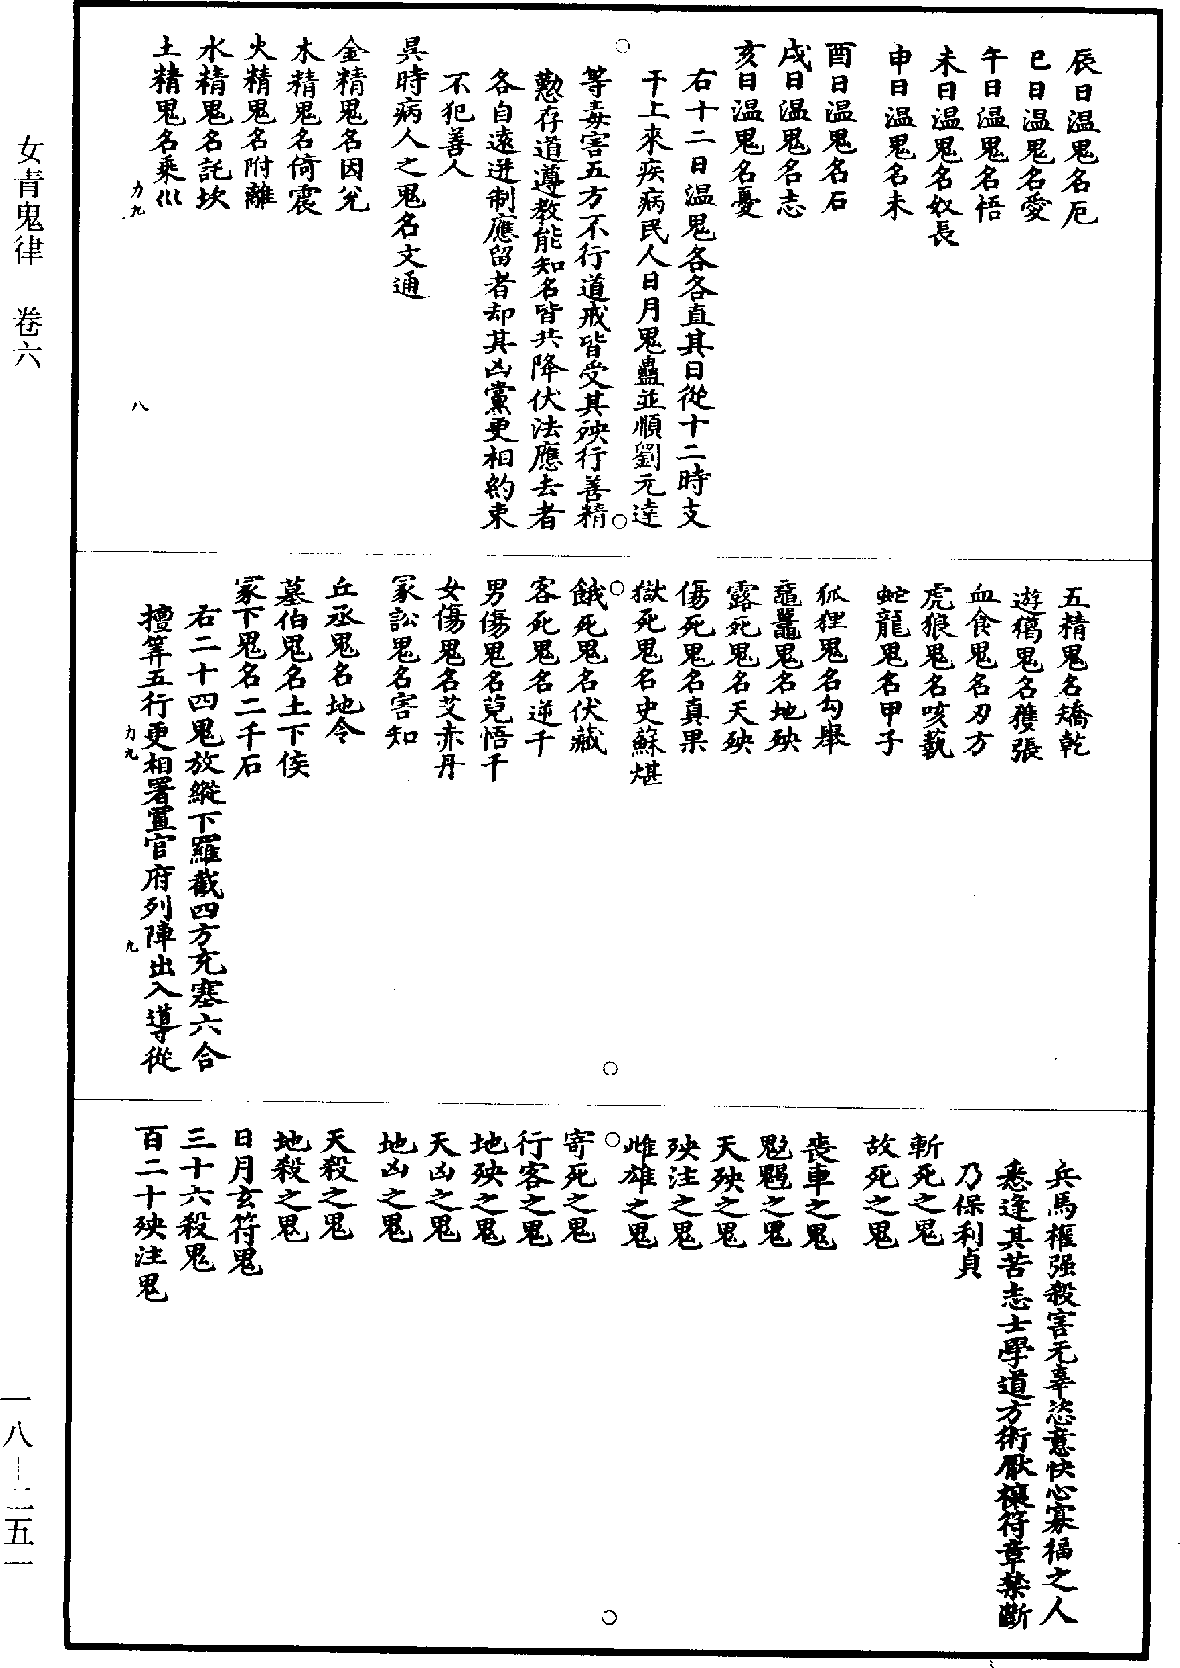 辰日温鬼名厄
巳日温鬼名愛
午日温鬼名悟
未日温鬼名奴長
申日温鬼名未
酉日温鬼名石
戌日温鬼名志
亥日温鬼名憂
右十二日温鬼各各直其日從十二時支
干上來疾病民人日月鬼蠱並順劉元達
等毒害五方不行道戒皆受其殃行善精
懃存道遵教能知名皆共降伏法應去者
各自遠迸制應留者却其凶黨更相約束
不犯善人
吳時病人之鬼名文通
金精鬼名因兊
木精鬼名倚震
火精鬼名附離
水精鬼名託坎
土精鬼名乘巛
力九
八
五精鬼名矯乾
遊𤡮鬼名獲張
血食鬼名刃方
虎狼鬼名咳蓺
蛇龍鬼名甲子
狐狸鬼名勾舉
黿鼉鬼名地殃
露死鬼名天殃
傷死鬼名真果
獄死鬼名史蘇煁
餓死鬼名伏藏
客死鬼名逆千
男傷鬼名莧悟千
女傷鬼名艾赤丹
冢訟鬼名害知
丘丞鬼名地令
墓伯鬼名土下侯
冢下鬼名二千石
右二十四鬼放縱下羅截四方充塞六合
擅筭五行更相署置官府列陣出入導從
力九
九
兵馬權强殺害无辜恣意快心寡福之人
悉逢其苦志士學道方術厭禳符章禁斷
乃保利貞
斬死之鬼
故死之鬼
喪車之鬼
魁魍之鬼
天殃之鬼
殃注之鬼
雌雄之鬼
寄死之鬼
行客之鬼
地殃之鬼
天凶之鬼
地凶之鬼
天殺之鬼
地殺之鬼
日月玄符鬼
三十六殺鬼
百二十殃注鬼
女青鬼律 卷六
一八—二五一